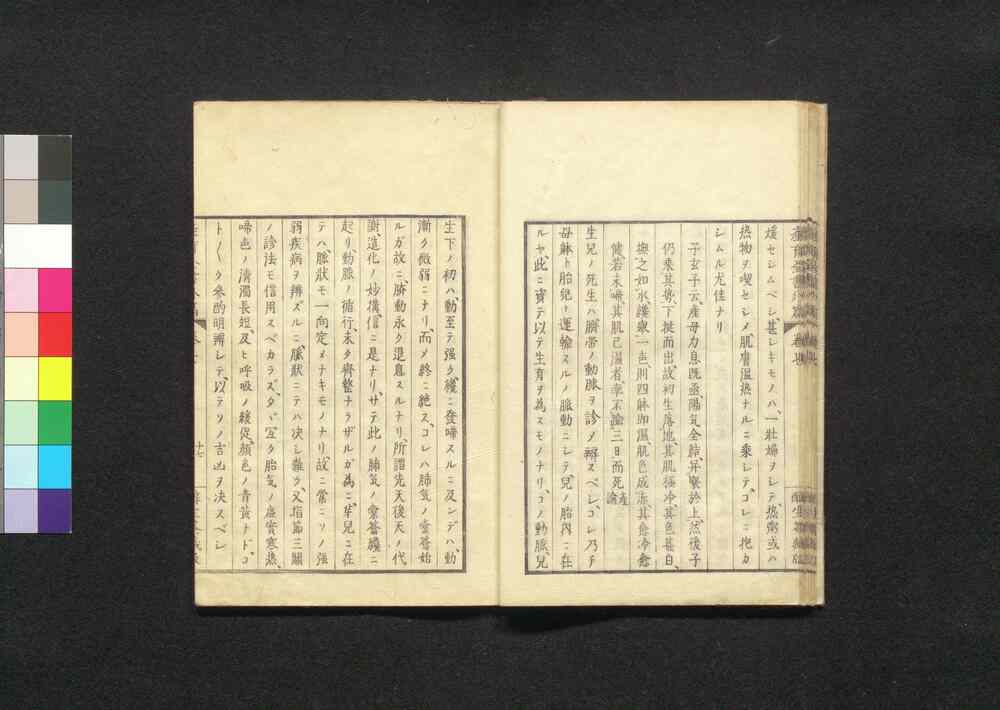 煖セシムベシ、甚シキモノハ、一壯婦ヲシテ熱粥或ハ
熱物ヲ喫セシメ、肌膚温熱ナルニ乘シテ、コレニ抱カ
シムル尤佳ナリ
子玄子云、産母力息既亟、陽氣全結、昇聚於上、然後子
仍乘其勢、下挺而出、故初生落地、其肌極冷、其色甚白、
撫之如氷、護衆一色、則四肢即温、肌色成赤、其愈冷愈
健、若未啼、其肌已温者、率不踰三日而死、産論
生兒ノ死生ハ臍帶ノ動脉ヲ診メ辨スベシ、コレ乃チ
母躰ト胎兒ト運輸スルノ脈動ニシテ、兒ノ胎内ニ在
ルヤ、此ニ資テ以テ生育ヲ為スモノナリ、コノ動脈、兒
生下ノ初ハ、動至テ强ク、纔ニ發啼スルニ及ンデハ、動
漸ク微弱ニナリ、而メ終ニ絶ス、コレハ肺氣ノ
ルガ故ニ、臍動永ク退息スルナリ、所謂先天後天ノ代
謝、造化ノ妙機、信ニ是ナリ、サテ此ノ肺氣ノ
起リ、動脈ノ循行、未タ齊整ナラザルガ為ニ、芽兒ニ在
テハ脈狀モ一向定メナキモノナリ、故ニ當ニソノ强
弱疾病ヲ辨ズルニ、脈狀ニテハ决シ難ク、又指節三關
ノ診法モ信用スベカラズ、タヾ宜ク胎氣ノ虚實寒熱、
啼色ノ清濁長短、及ヒ呼吸ノ緩促、顔色ノ青黄ナド、コ
ト〱ク參酌明辨シテ、以テソノ吉凶ヲ决スベシ
十七